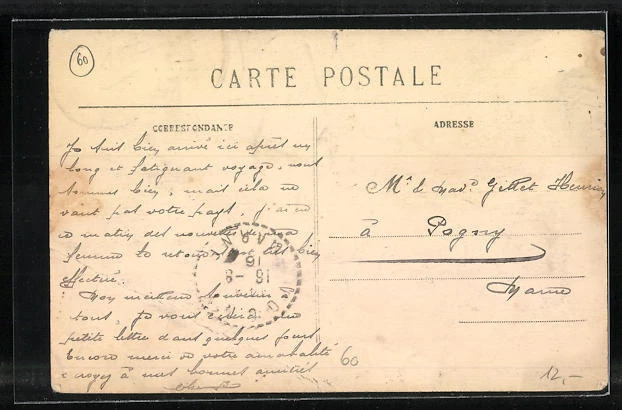 60
CARTE POSTALE
CORRESPONDANCE
ADRESSE
Je suis bien arrivé ici après un
long et fatiguant voyage, nous
sommes bien, mais cela ne
vaut pas votre pays, j'ai eu
ce matin des nouvelles de ma
femme le retour s'est bien
effectué.
Mon meilleur souvenir à
tous, je vous écrirai une
petite lettre dans quelques jours
Encore merci de votre amabilité
croyez à mes bonnes amitiés
Mr Gillet Henri
à Pogny
Marne
16 -8
60
12,-